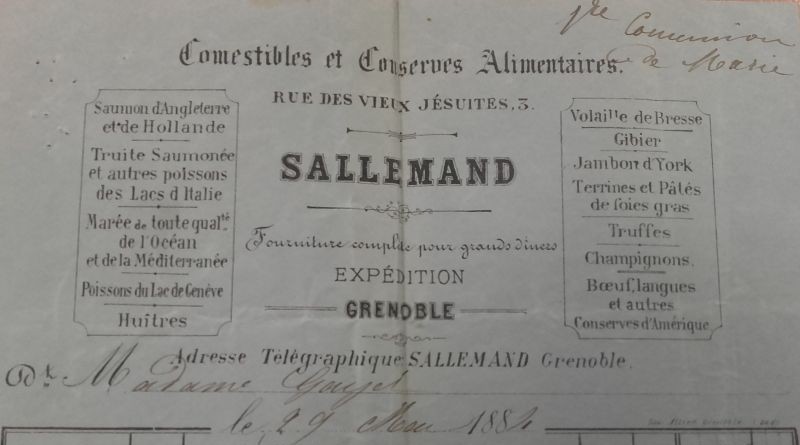 1re Communion
de Marie
Comestibles et Conserves Alimentaires.
RUE DES VIEUX JÉSUITES, 3.
Saumon d'Angleterre
et de Hollande
Truite Saumonée
et autres poissons
des Lacs d'Italie
Marée de toute qualté
de l'Océan
et de la Méditerranée
Poissons du Lac de Genève
Huîtres
SALLEMAND
Fourniture complète pour grands dîners
EXPÉDITION
GRENOBLE
Volaille de Bresse
Gibier
Jambon d'York
Terrines et Pâtés
de foies gras
Truffes
Champignons.
Bœuf, langues
et autres
Conserves d'Amérique
Adresse Télégraphique SALLEMAND Grenoble.
Dt. Madame
le 29 Mai 1884